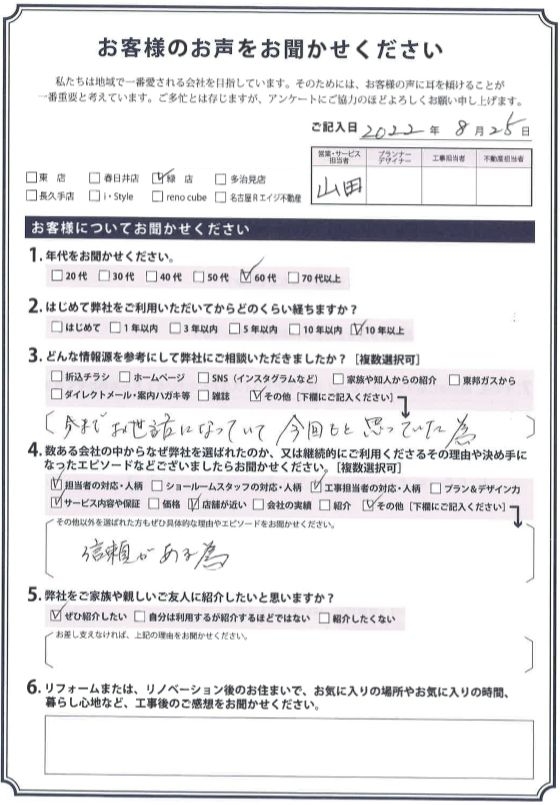 お客様のお声をお聞かせください
私たちは地域で一番愛される会社を目指しています。そのためには、お客様の声に耳を傾けることが
一番重要と考えています。ご多忙とは存じますが、アンケートにご協力のほどよろしくお願い申し上げます。
ご記入日 2022年 8月25日
営業・サービス担当者 プランナーデザイナー 工事担当者 不動産担当者
山田
□東 店 □春日井店 ☑緑 店 □多治見店
□長久手店 □i・Style □reno cube □名古屋Rエイジ不動産
お客様についてお聞かせください
1. 年代をお聞かせください。
□20代 □30代 □40代 □50代 ☑60代 □70代以上
2. はじめて弊社をご利用いただいてからどのくらい経ちますか？
□はじめて □1年以内 □3年以内 □5年以内 □10年以内 ☑10年以上
3. どんな情報源を参考にして弊社にご相談いただきましたか？［複数選択可］
□折込チラシ □ホームページ □SNS（インスタグラムなど） □家族や知人からの紹介 □東邦ガスから
□ダイレクトメール・案内ハガキ等 □雑誌 ☑その他［下欄にご記入ください］
今までお世話になっていて 今回もと思っていた為
4. 数ある会社の中からなぜ弊社を選ばれたのか、又は継続的にご利用くださるその理由や決め手に
なったエピソードなどございましたらお聞かせください。［複数選択可］
☑担当者の対応・人柄 □ショールームスタッフの対応・人柄 ☑工事担当者の対応・人柄 □プラン＆デザイン力
☑サービス内容や保証 □価格 ☑店舗が近い □会社の実績 □紹介 ☑その他［下欄にご記入ください］
その他以外を選ばれた方もぜひ具体的な理由やエピソードをお聞かせください。
信頼がある為
5. 弊社をご家族や親しいご友人に紹介したいと思いますか？
☑ぜひ紹介したい □自分は利用するが紹介するほどではない □紹介したくない
お差し支えなければ、上記の理由をお聞かせください。
6. リフォームまたは、リノベーション後のお住まいで、お気に入りの場所やお気に入りの時間、
暮らし心地など、工事後のご感想をお聞かせください。